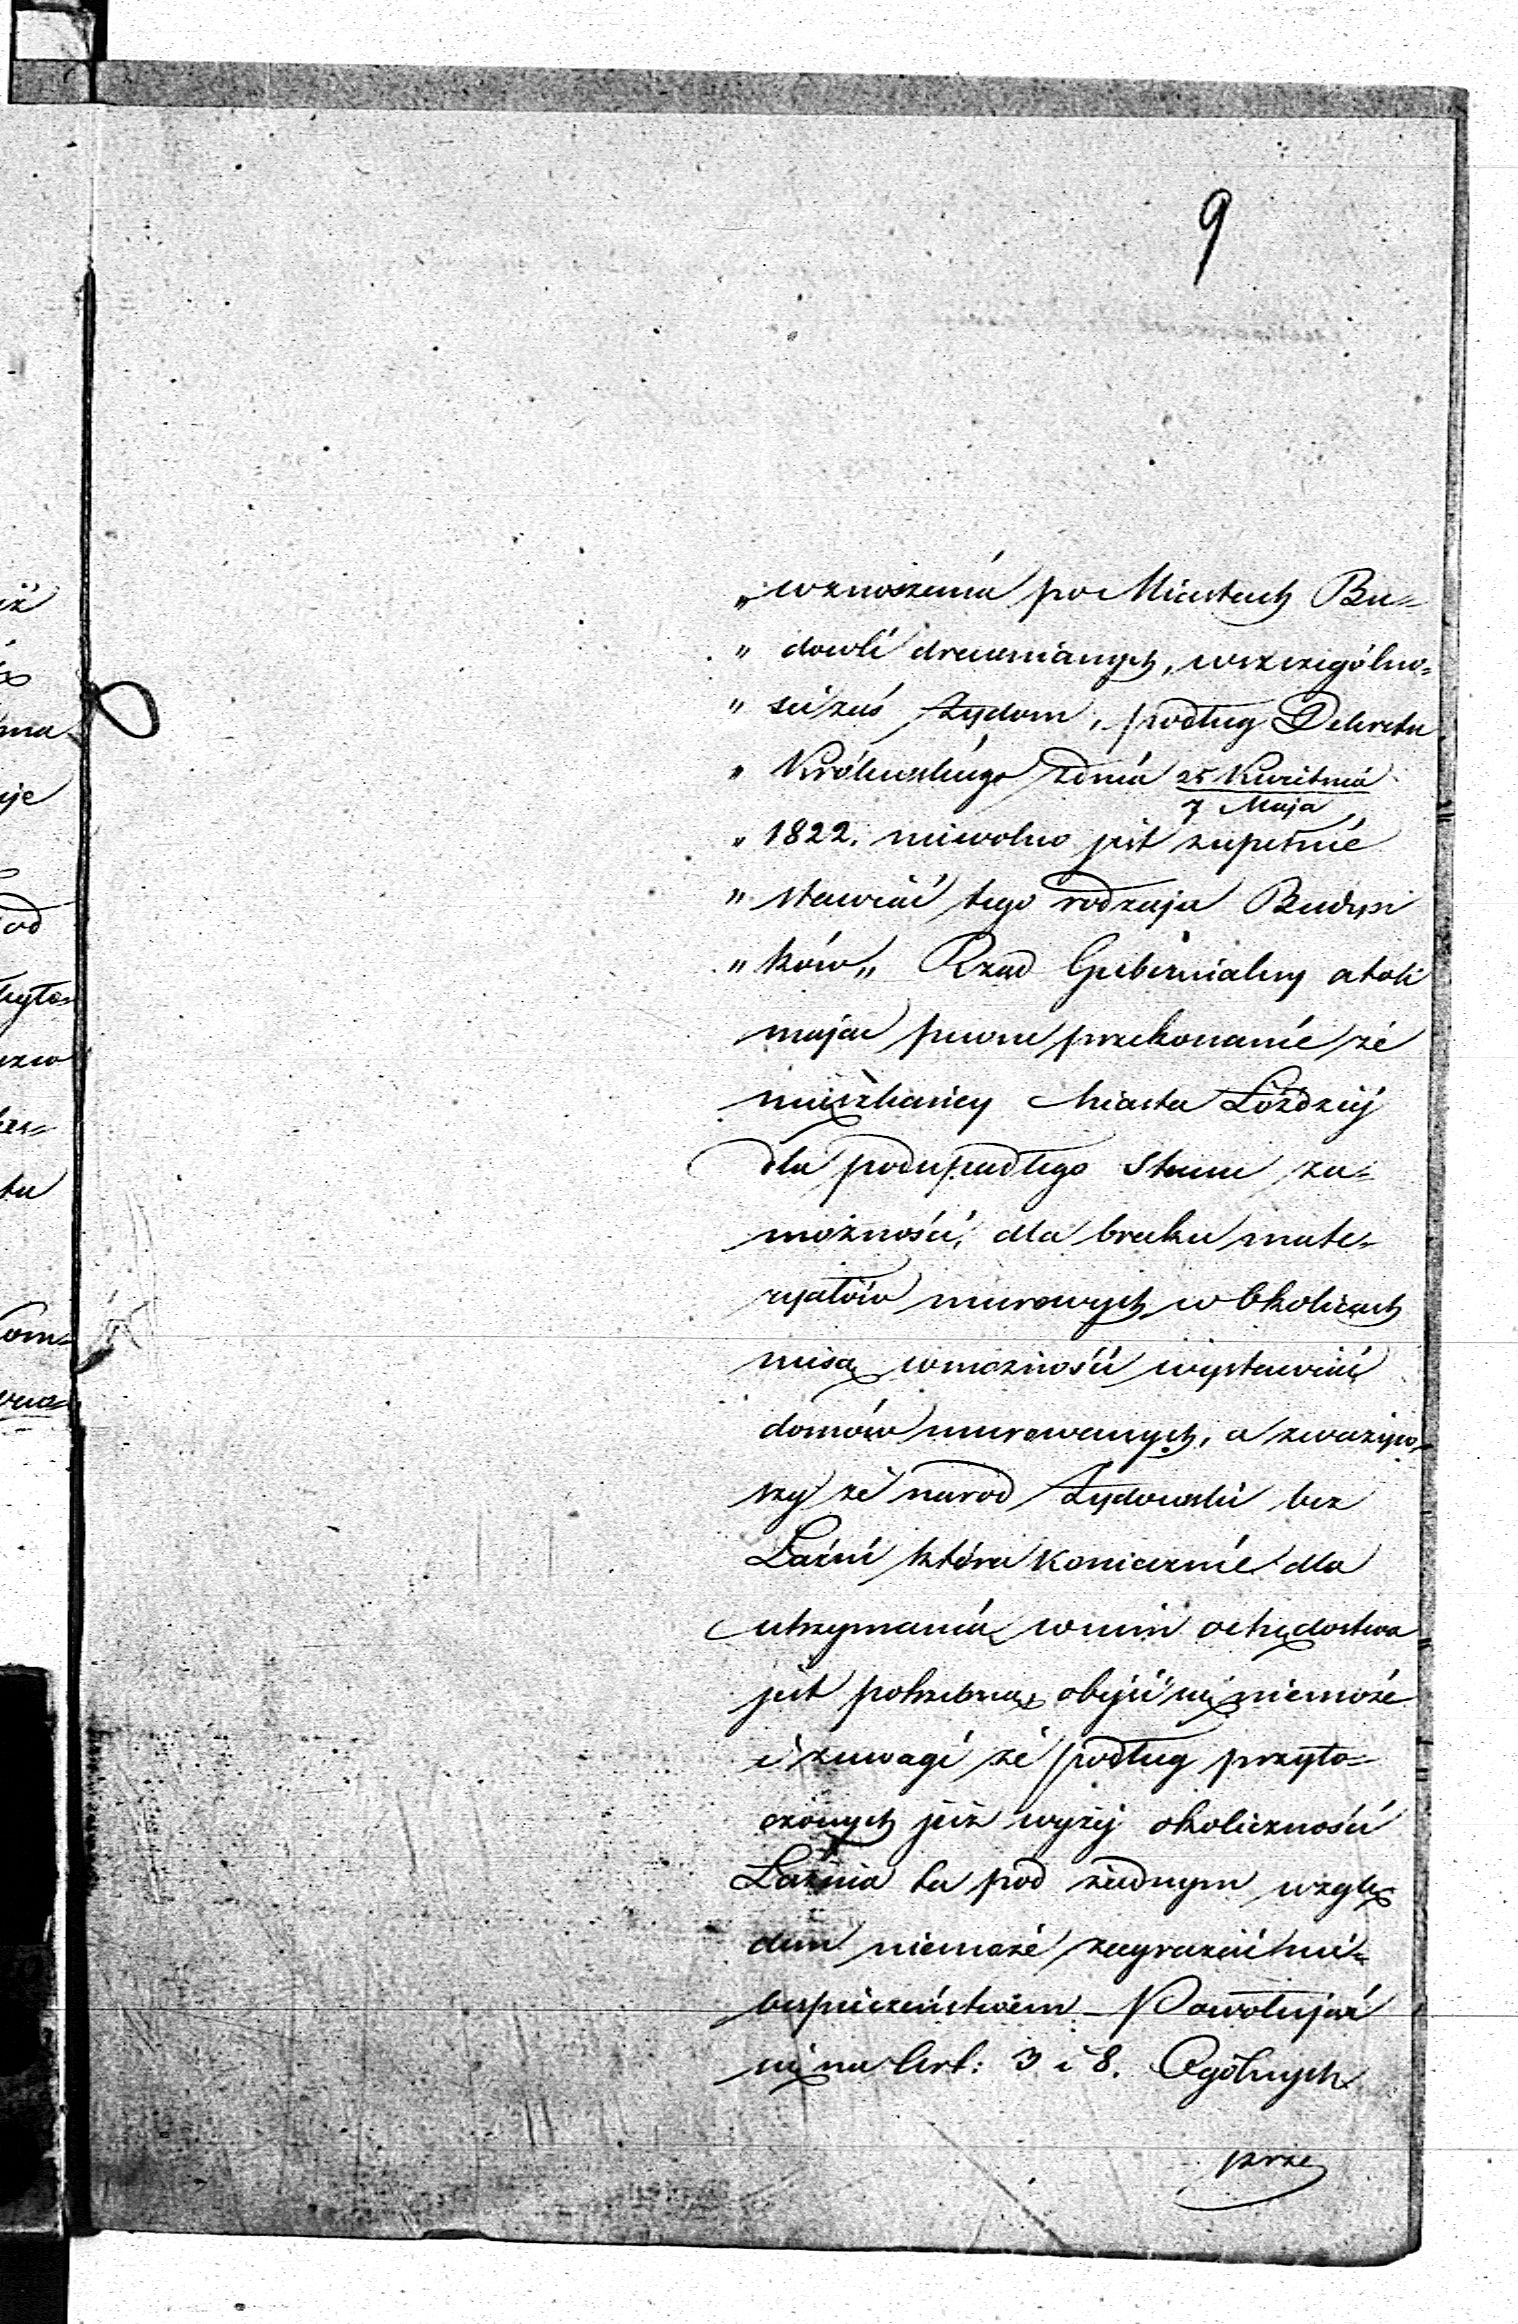 9
„ wznoszenia po Miastach Bu-
„ dowli drewnianych, wszczególno-
„ ści zaś żydom, podług Dekretu
„ Królewskiego zdnia 25 Kwietnia
7 Maja
„ 1822. niewolno jest zupełnie
„ stawiać tego rodzaju Budyn
„ ków„ Rząd Gubernialny atoli
mając pewne przekonanie że
mieszkańcy Miasta Łoździej
dla podupadłego Stanu za-
możności, dla braku mate-
ryałów murowych w Okolicach
niesą wmożności wystawić
domów murowanych, a zważyw-
szy że narod Żydowski bez
Łaźni która koniecznie dla
utrzymania wnim ochędostwa
jest potrzebną obejść się niemoże
i zuwagi że podług przyto-
czonych już wyżej okoliczności
Łaźnia ta pod żadnym wzglę
dem niemoże zagrażać nie-
bespieczeństwem – Powołując
się na Art: 3 i 8. Ogólnych
prze
iż
ma
uje
od
tu
Kom-